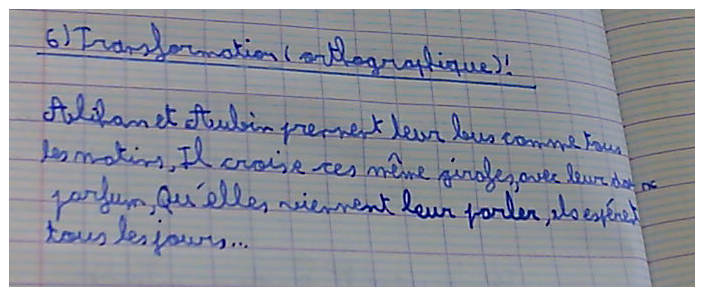 6) Transformation (orthographique)!
Alihan et Aubin prennent leur bus comme tous
les matins, Il croise ces même girafes, avec leur
parfum, Qu'elles viennent leur parler, ils espéret
tous les jours...